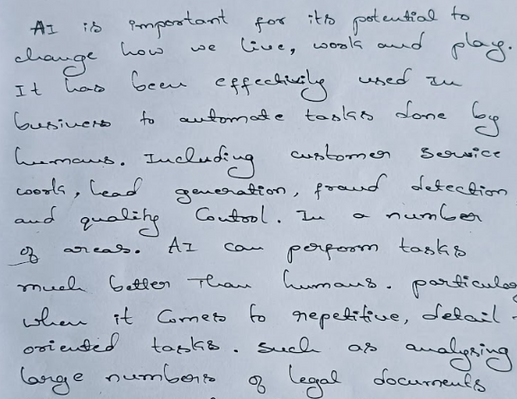 AI is important for its potential to
change how we live, work and play.
It has been effectively used in
business to automate tasks done by
humans. Including customer service
work, lead generation, fraud detection
and quality Control. In a number
of areas. AI can perform tasks
much better Than humans. particular
when it Comes to repetitive, detail -
oriented tasks. such as analysing
large numbers of legal documents